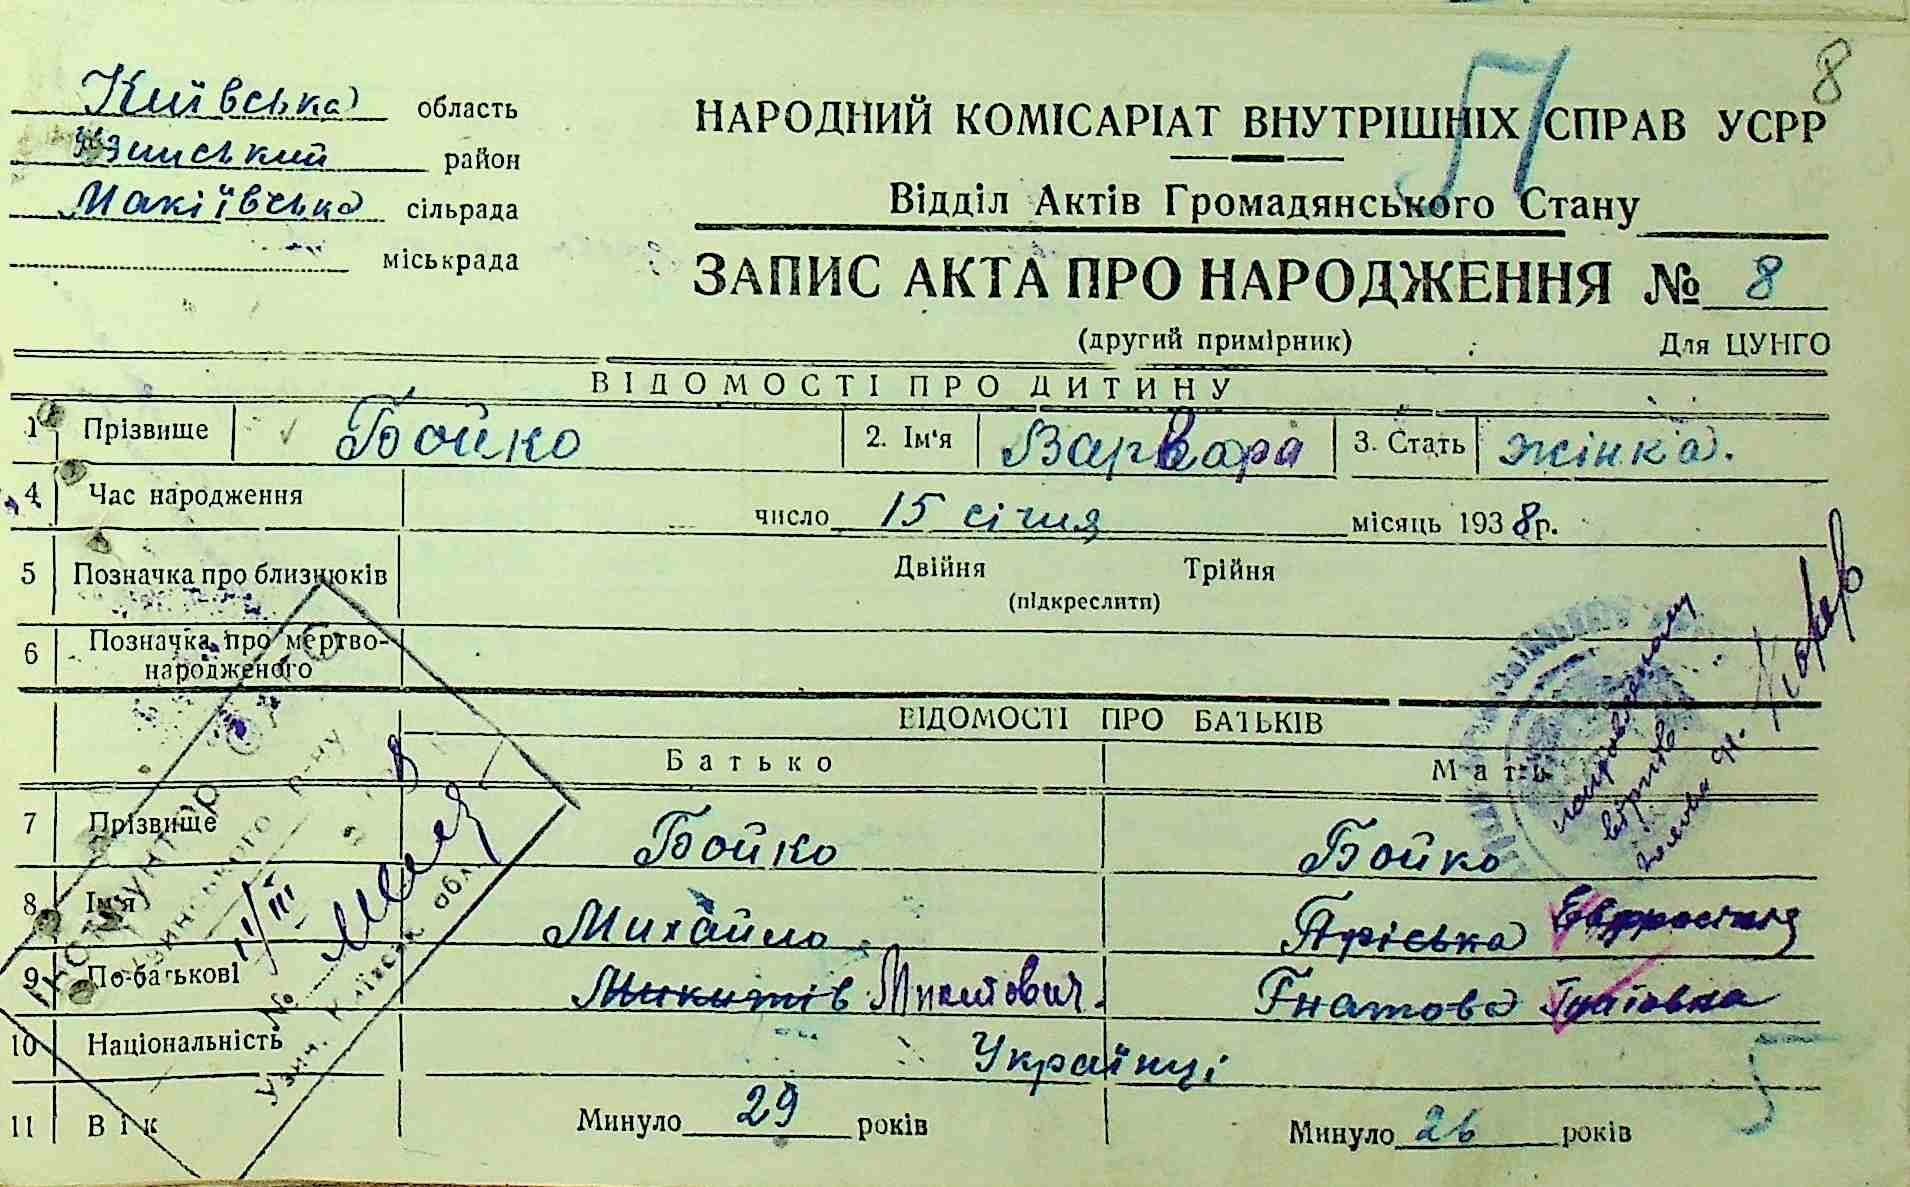 8
Київська область
Узинський район
Макіївська сільрада
міськрада
НАРОДНИЙ КОМІСАРІАТ ВНУТРІШНІХ СПРАВ УСРР
Відділ Актів Громадянського Стану
ЗАПИС АКТА ПРО НАРОДЖЕННЯ № 8
(другий примірник) Для ЦУНГО
ВІДОМОСТІ ПРО ДИТИНУ
1 Прізвище Бойко 2. Ім'я Варвара 3. Стать жінка.
4 Час народження число 15 січня місяць 1938 р.
5 Позначка про близнюків Двійня Трійня
(підкреслити)
6 Позначка про мертво-
народженого
ВІДОМОСТІ ПРО БАТЬКІВ
Батько Мати
7 Прізвище Бойко Бойко
8 Ім'я Михайло Пріська Евфросинія
9 По-батькові Микитів Микитович. Гнатова Гнатовна
10 Національність Українці
11 Вік Минуло 29 років Минуло 26 років
5